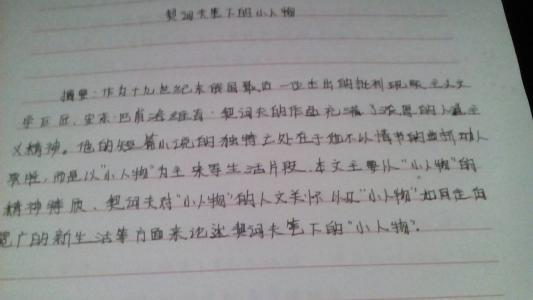 契诃夫笔下的小人物
摘要:作为十九世纪末俄国最后一位杰出的批判现实主义文
学巨匠,安东·巴甫洛维奇·契诃夫的作品充满了浓厚的人道主
义精神。他的短篇小说的独特之处在于他不以情节的曲折动人
取胜,而是以“小人物”为主来写生活片段。本文主要从“小人物”的
精神特质、契诃夫对“小人物”的人文关怀以及“小人物”如何走向
宽广的新生活等方面来论述契诃夫笔下的“小人物”。